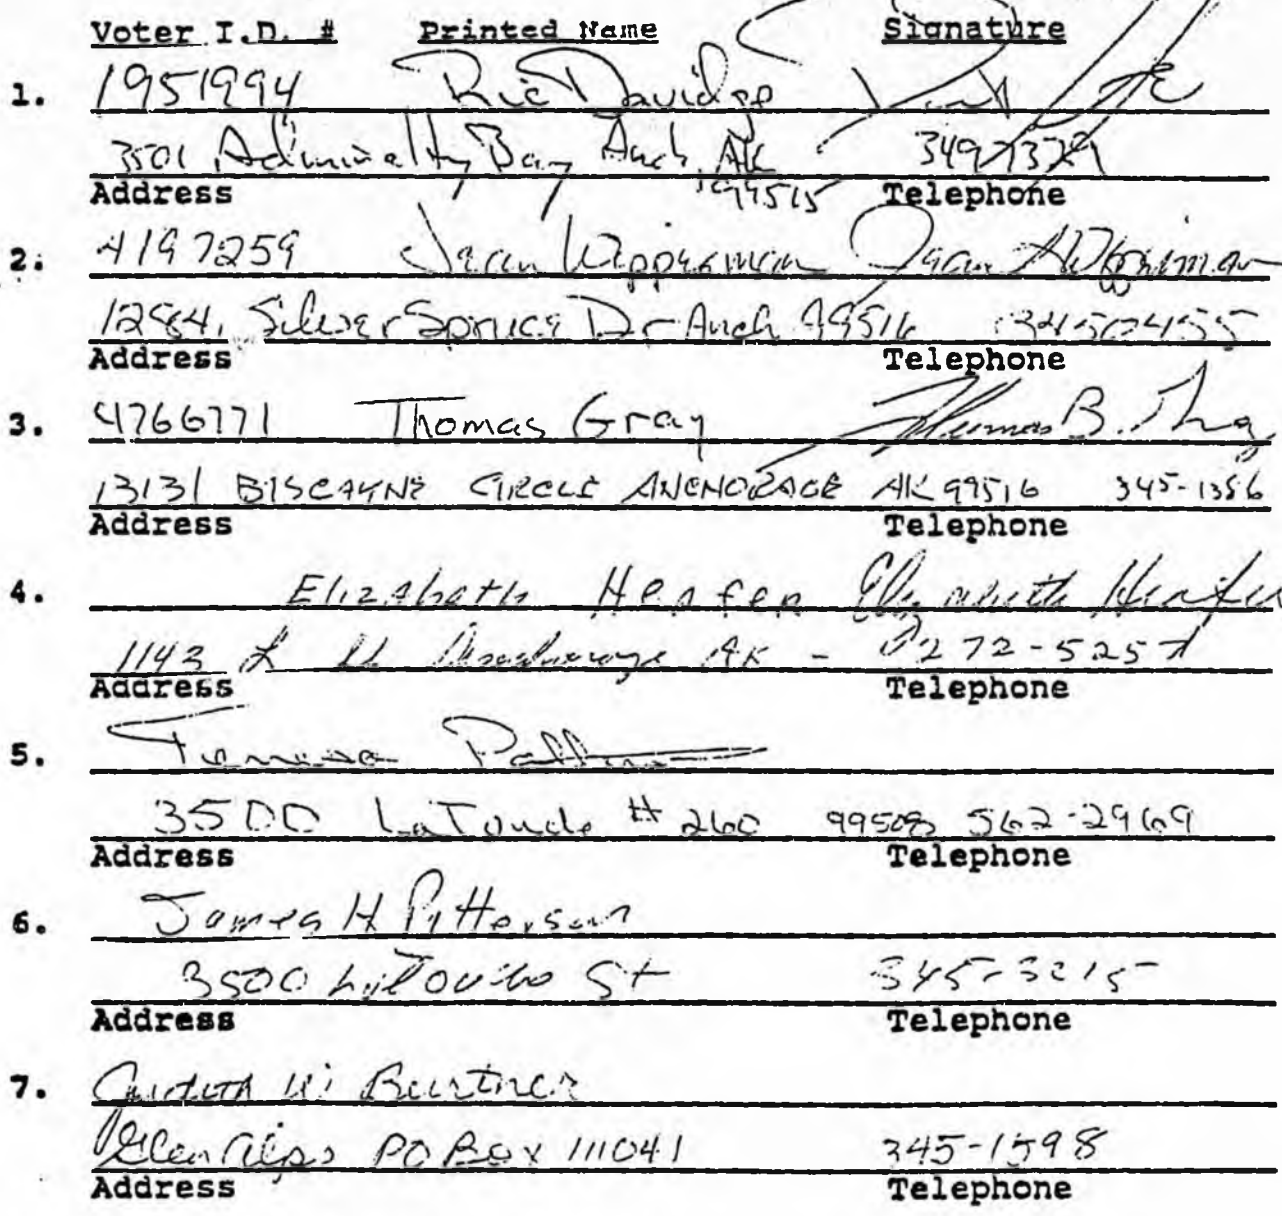 Voter I.D. # Printed Name Signature
1. 1951994 Ric Davidge
3501 Admiralty Bay Anch, AK 99515 349
Address Telephone
2. 4197259 Jean Wipperman Jean A Wipperman
Silver Spruce Dr Anch 99516 3450455
Address Telephone
3. 4766771 Thomas Gray Thomas B. Gray
13131 BISCAYNE CIRCLE ANCHORAGE AK 99516 345-1356
Address Telephone
4. Elizabeth Henfer Elizabeth Henfer
1143 L Anchorage AK - 272-5257
Address Telephone
5. Teresa
3500 LaTouche # 260 99508 562-2969
Address Telephone
6. James H Patterson
3500 LaTouche St 345-3215
Address Telephone
7. Judith W. Burtner
Glen Alps PO Box 111041 345-1598
Address Telephone